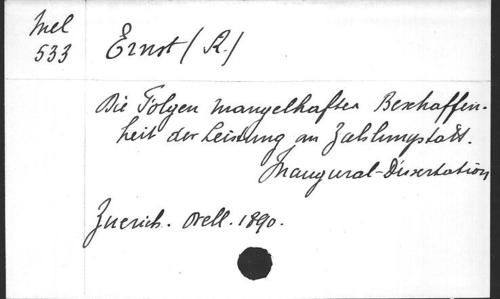 Mel
533
Ernst (R.)
Die Folgen mangelhafter Beschaffen-
heit der Leistung an Zahlungstatt.
Inaugural-Dissertation
Zuerich. Orell. 1890.